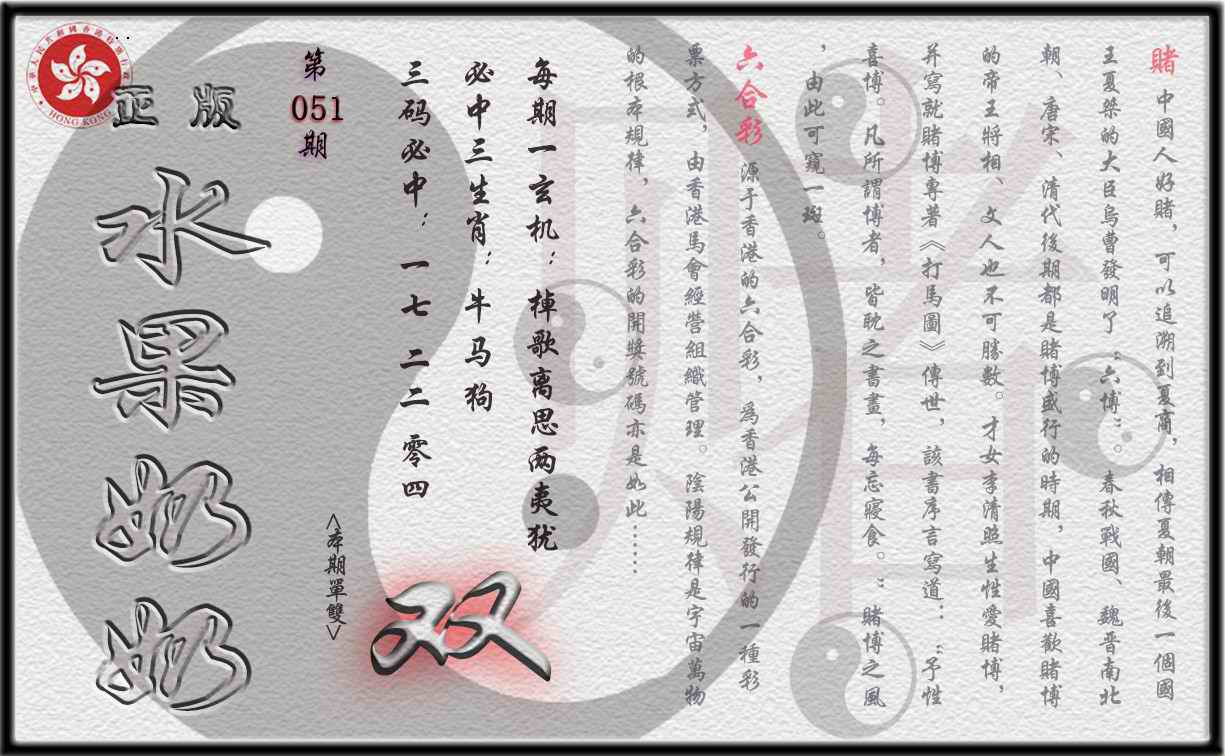 賭 中國人好賭，可以追溯到夏商，相傳夏朝最後一個國
王夏桀的大臣烏曹發明了“六博”。春秋戰國、魏晋南北
朝、唐宋、清代後期都是賭博盛行的時期，中國喜歡賭博
的帝王將相、文人也不可勝數。才女李清照生性愛賭博，
并寫就賭博專著《打馬圖》傳世，該書序言寫道：“予性
喜博。凡所謂博者，皆耽之書畫，每忘寢食。”賭博之風
，由此可窺一斑。
六合彩 源于香港的六合彩，爲香港公開發行的一種彩
票方式，由香港馬會經營組織管理。陰陽規律是宇宙萬物
的根本規律，六合彩的開獎號碼亦是如此……
每期一玄机：棹歌离思两夷犹
必中三生肖：牛马狗
三码必中：一七 二二 零四
<本期單雙>
双
第
051
期
正版
水果奶奶
中華人民共和國香港特別行政區
HONG KONG
賭